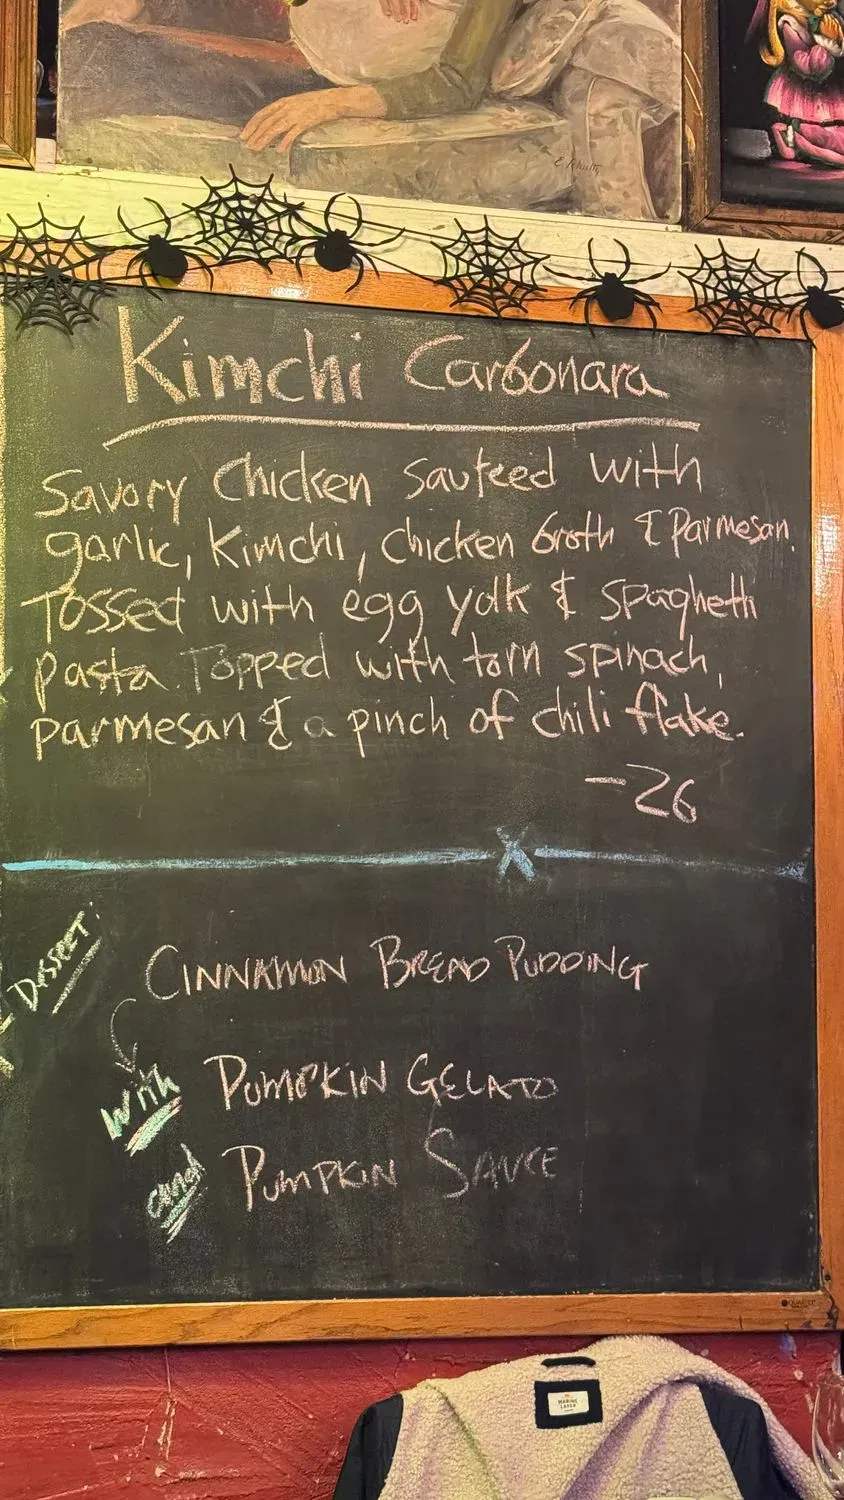 Kimchi Carbonara
Savory Chicken Sauteed with
garlic, Kimchi, chicken broth & Parmesan.
Tossed with egg yolk & spaghetti
pasta. Topped with torn spinach,
parmesan & a pinch of chili flake.
-26
Dessert:
CINNAMON BREAD PUDDING
with PUMPKIN GELATO
and PUMPKIN SAUCE
QUARTET
MARINE
LAYER